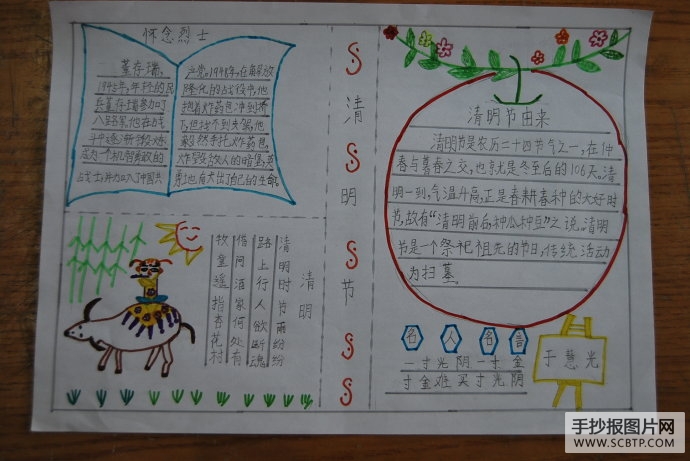 怀念烈士
董存瑞,
1945年,年轻的民
兵董存瑞参加了
八路军,他在战
斗中逐渐锻炼
成为一个机智勇敢的
战士,并加入了中国共
产党。1948年,在解放
隆化的战役中,他
抱着炸药包冲到桥
下,但找不到支架,他
毅然手托炸药包,
炸毁敌人的暗堡,英
勇地献出了自己的生命。
清明节
清明节由来
清明节是农历二十四节气之一,在仲
春与暮春之交,也就是冬至后的106天。清
明一到,气温升高,正是春耕春种的大好时
节,故有“清明前后,种瓜种豆”之说。清明
节是一个祭祀祖先的节日,传统活动
为扫墓。
清明
清明时节雨纷纷
路上行人欲断魂
借问酒家何处有
牧童遥指杏花村
名人名言
一寸光阴一寸金
寸金难买寸光阴
于慧光
手抄报图片网
WWW.SCBTP.COM